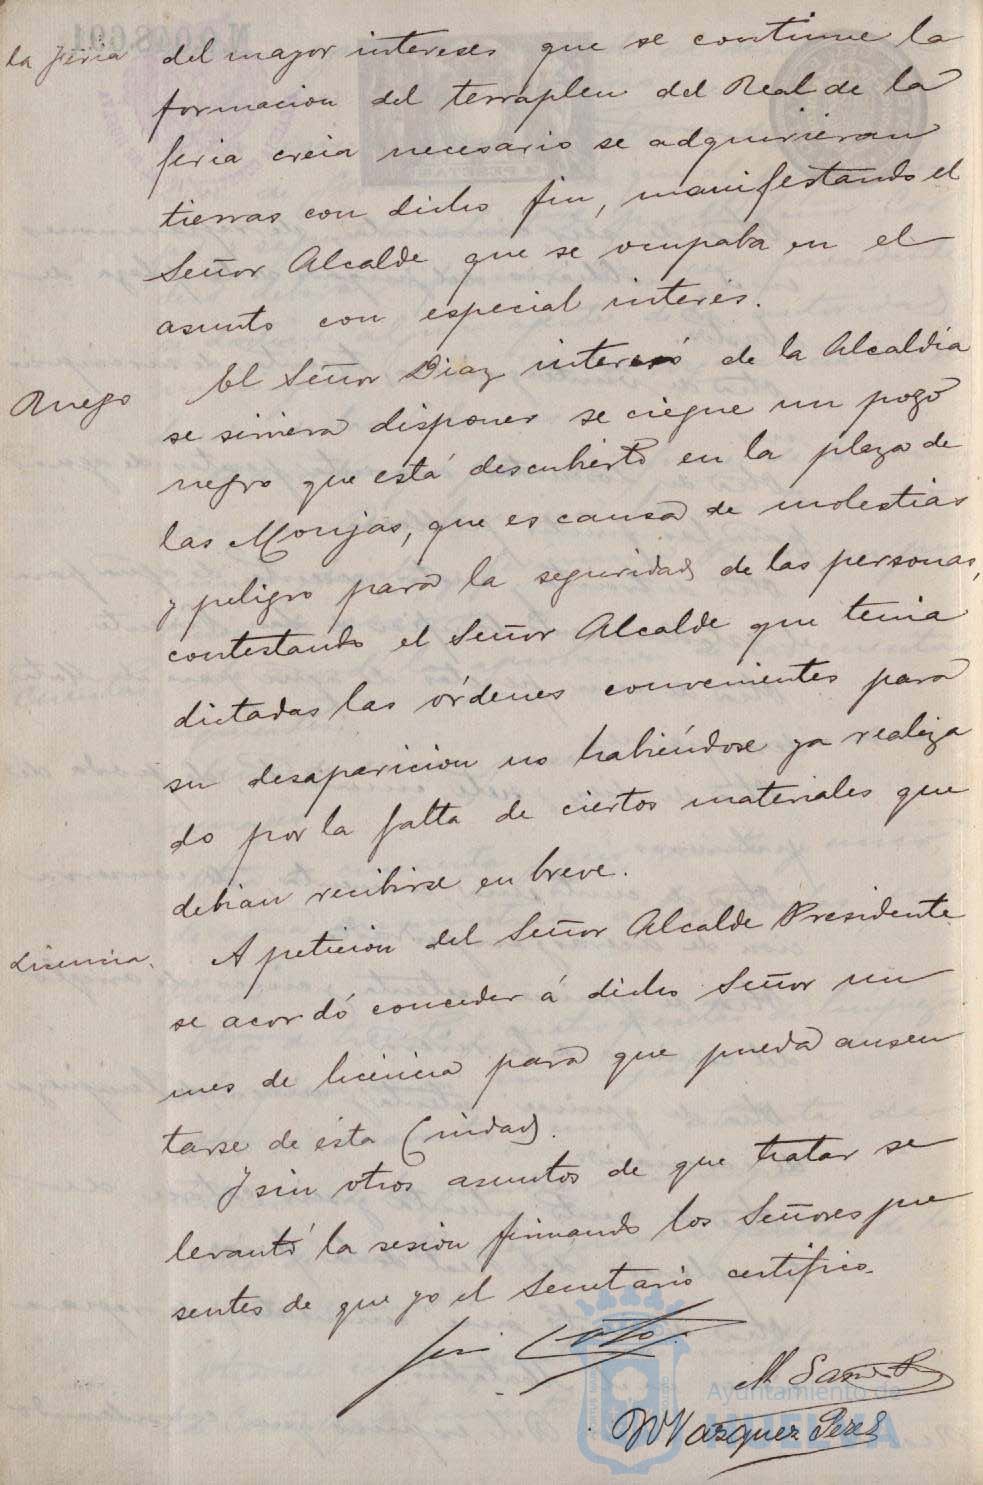 la feria
del mayor intereses que se continue la
formacion del terraplen del Real de la
feria creia necesario se adquirieran
tierras con dicho fin, manifestando el
Señor Alcalde que se ocupaba en el
asunto con especial interés.
Ruego
El Señor Diaz interesó de la Alcaldia
se sirviera disponer se ciegue un pozo
negro que está descubierto en la plaza de
las Monjas, que es causa de molestias
y peligro para la seguridad de las personas,
contestando el Señor Alcalde que tenia
dictadas las órdenes convenientes para
su desaparicion no habiéndose ya realiza
do por la falta de ciertos materiales que
debian recibirse en breve.
Licencia.
A peticion del Señor Alcalde Presidente
se acordó conceder á dicho Señor un
mes de licencia para que pueda ausen
tarse de esta Ciudad.
Y sin otros asuntos de que tratar se
levantó la sesión firmando los Señores pre
sentes de que yo el Secretario certifico.
M
W Vazquez Perez
Ayuntamiento de
HUELVA